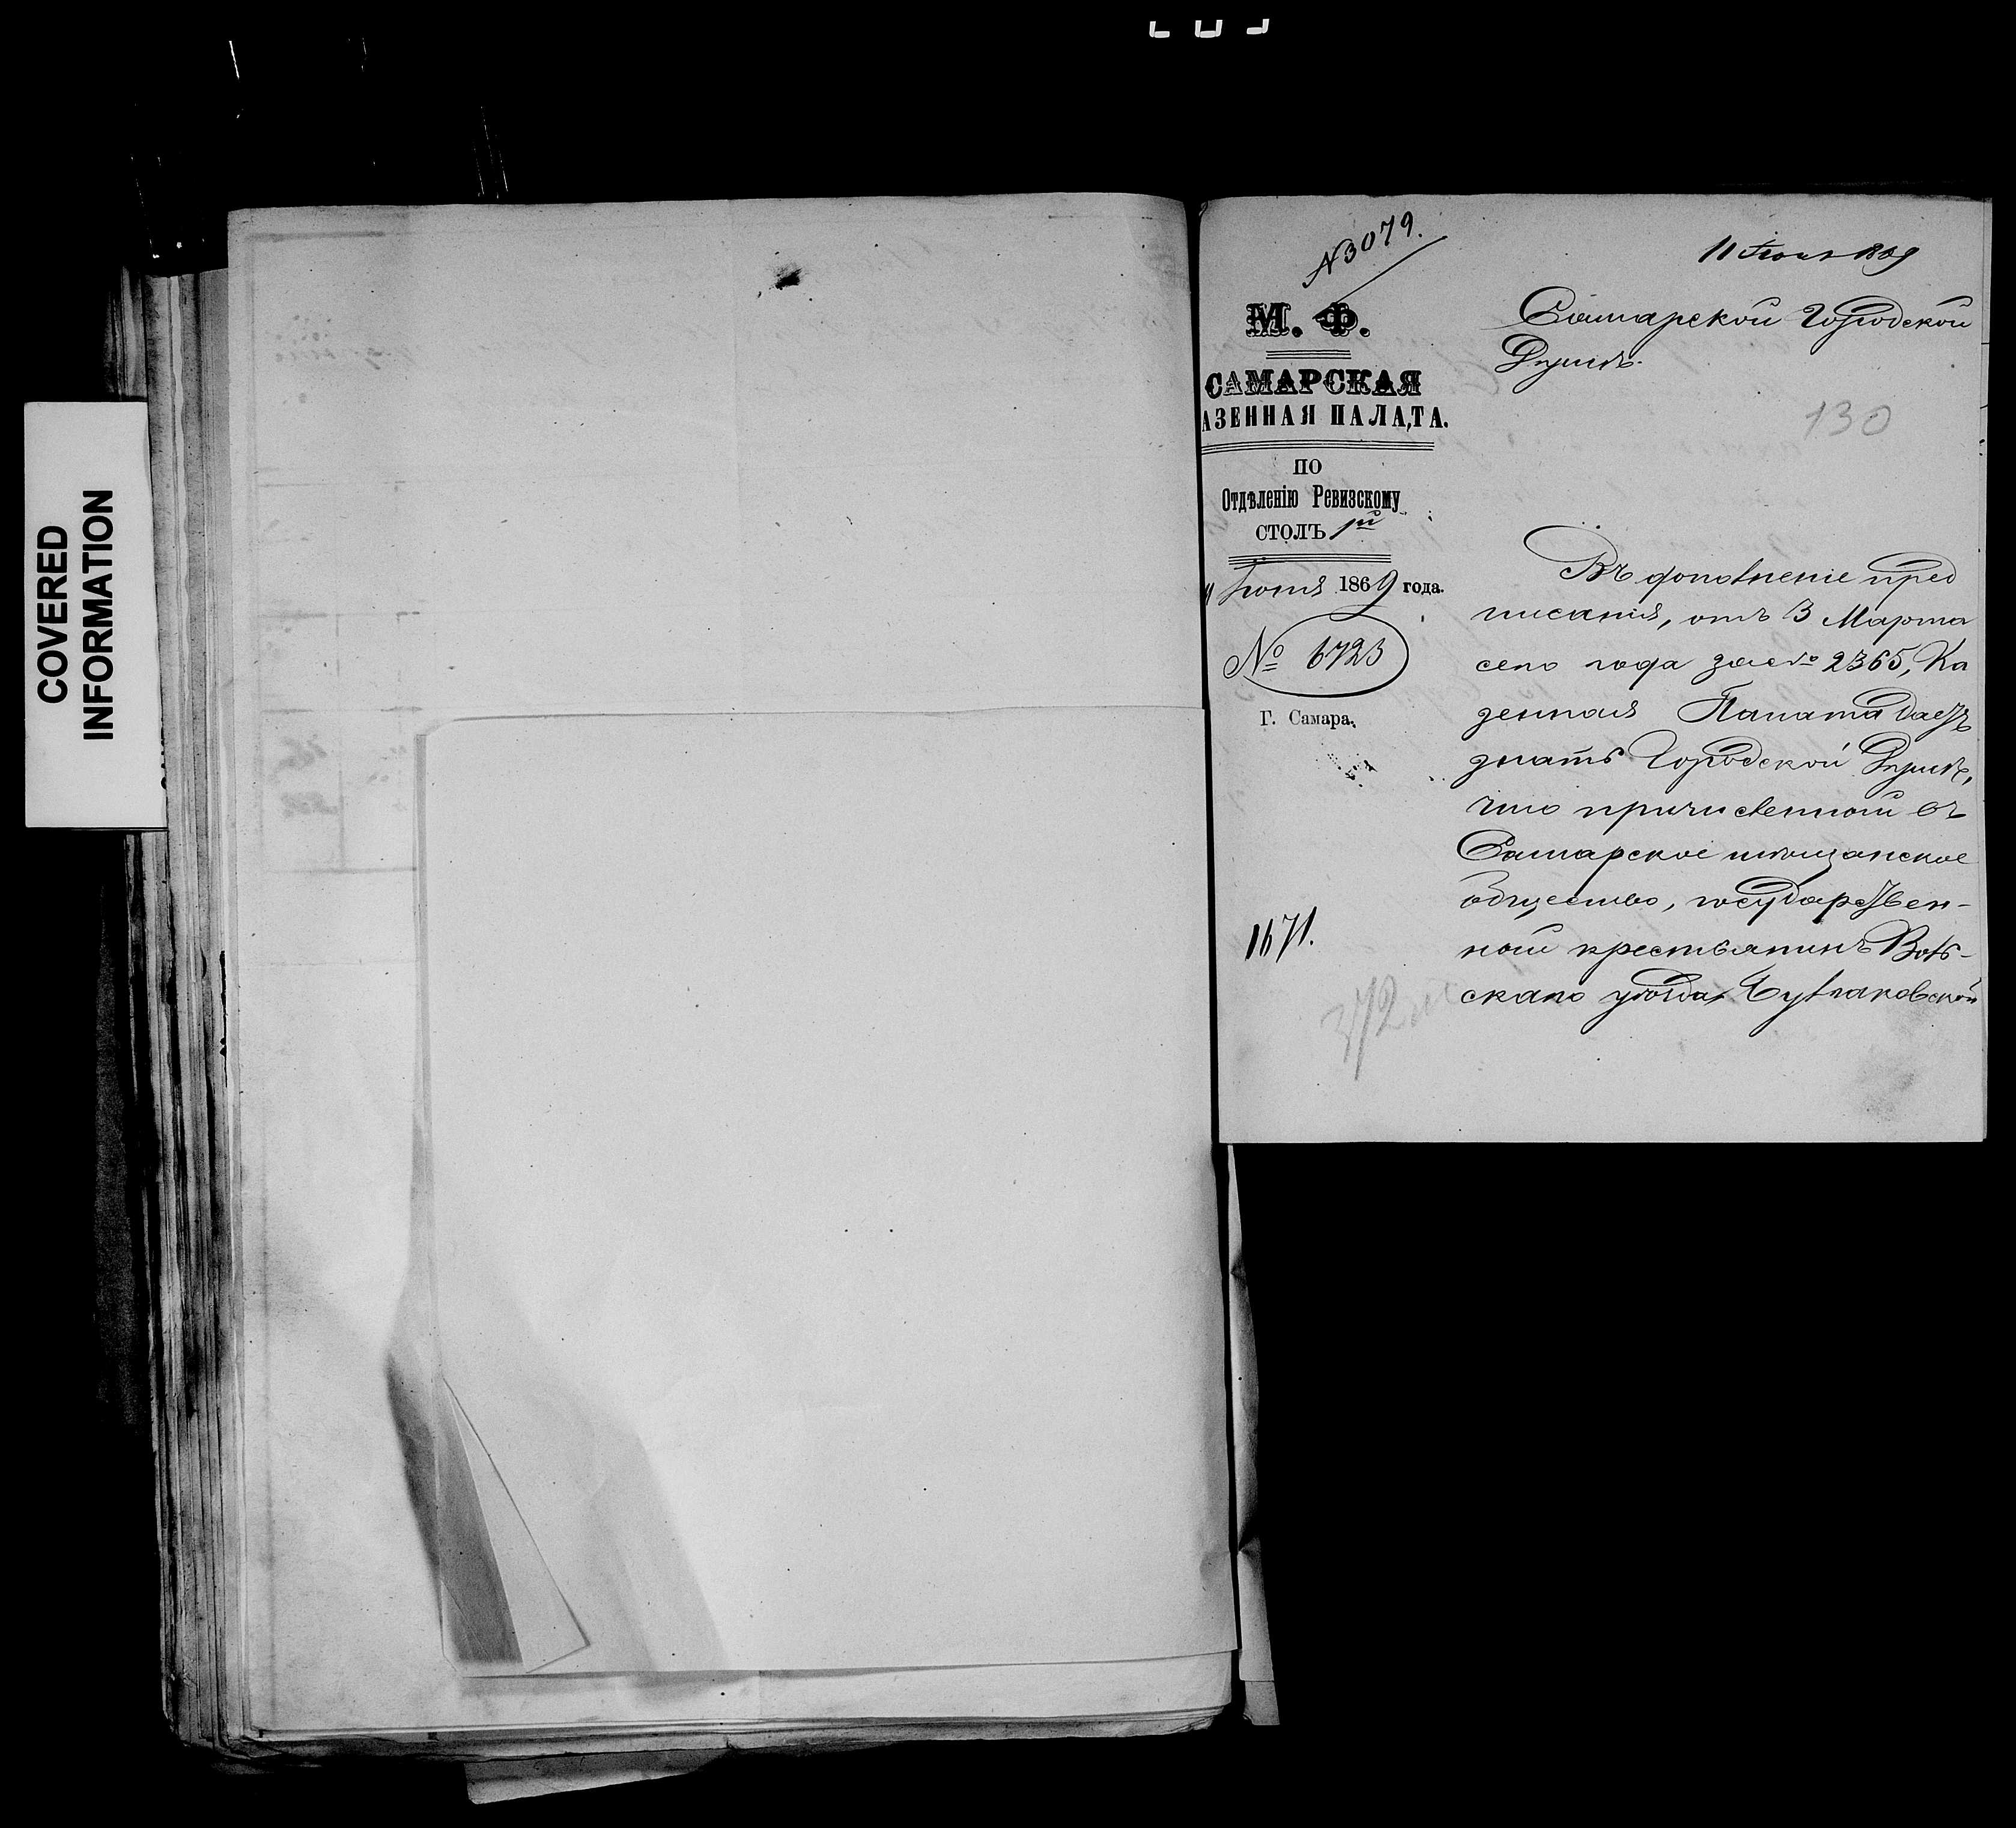 COVERED
INFORMATION
N 3079.
М. Ф.
САМАРСКАЯ
АЗЕННАЯ ПАЛАТА.
ПО
Отдѣленію Ревизскому
СТОЛЪ 1й
Іюня 1869 года.
№ 6723
Г. Самара.
1671.
372
11 Іюня 1869
Самарской Городской
Думѣ.
130
Въ дополненіе пред
писанія, отъ 3 Марта
сего года за № 2365, Ка
зенная Палата даетъ
знать Городской Думѣ,
что причисленной въ
Самарское мѣщанское
общество, государствен-
ной крестьянинъ Воль-
скаго уѣзда